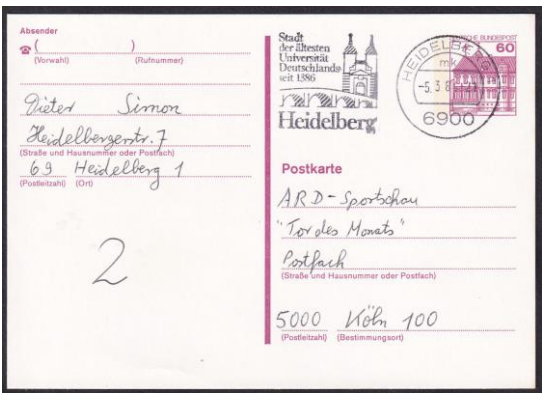 Absender
( )
(Vorwahl) (Rufnummer)
Dieter Simon
Heidelbergerstr. 7
(Straße und Hausnummer oder Postfach)
69 Heidelberg 1
(Postleitzahl) (Ort)
2
Stadt
der ältesten
Universität
Deutschlands
seit 1386
Heidelberg
HEIDELBERG
mk
-5.3.8
6900
DEUTSCHE BUNDESPOST
60
Postkarte
ARD-Sportschau
"Tor des Monats"
Postfach
(Straße und Hausnummer oder Postfach)
5000 Köln 100
(Postleitzahl) (Bestimmungsort)